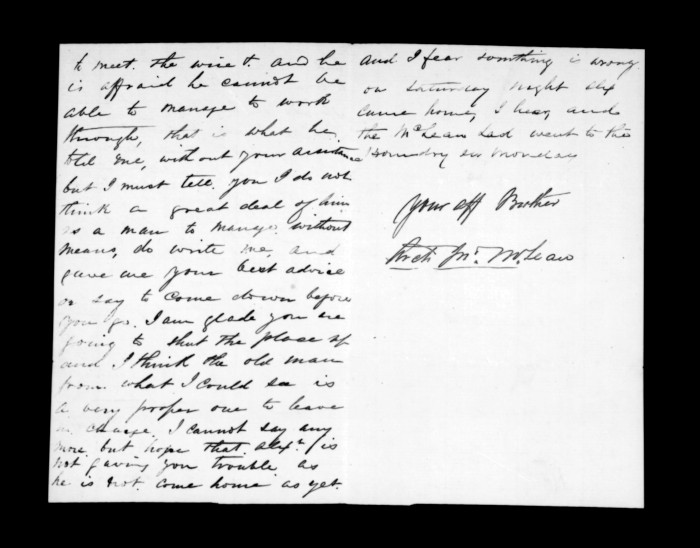 to meet. the wire &. and he
is affraid he cannot be
able to manage to work
through, that is what he
told me, without your assistance
but I must tell you I do not
think a great deal of him
as a man to mange. without
means, do write me, and
gave me your best advice
or say to come down before
you go. I am glade you are
going to shut the place up
and I think the old man
from what I could see is
a very proper one to leave
in charge. I cannot say any
more but hope that Alexr is
not gaving you trouble as
he is not come home as yet.
and I fear somthing is wrong
on Saturday night Alex
came home, I hear, and
the McLean Lad went to the
on Monday
your aff Brother
Archd Jn. McLean